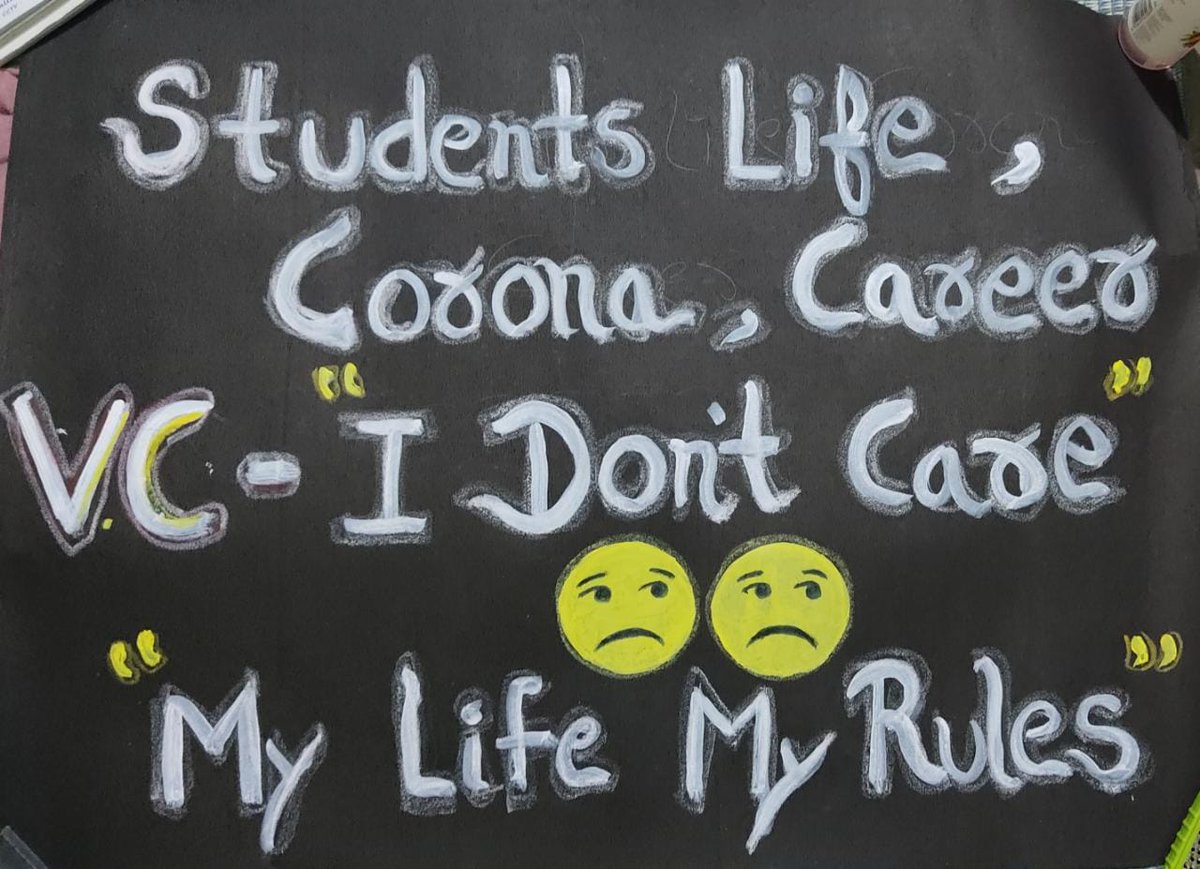 Students Life ,
Corona , Career
VC - "I Don't Care"
"My Life My Rules"